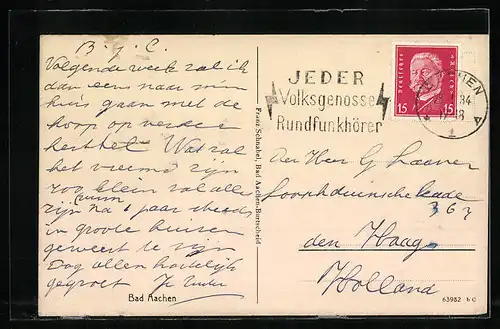 B. g. C.
Volgende week zal ik
dan eens naar mijn
huis gaan met de
hoop op verder
herstel. Wat zal
het vreemd zijn
zoo klein zal alles
zijn na ruim 1 paar
in groote huizen
geweest te zijn
Dag allen hartelijk
gegroet
Bad Aachen
Franz Schnabel, Bad Aachen-Burtscheid
JEDER
Volksgenosse
Rundfunkhörer
Deutsches Reich
15 15
Den Heer G
Loosduinschekade
367
den Haag
Holland
63982 b C